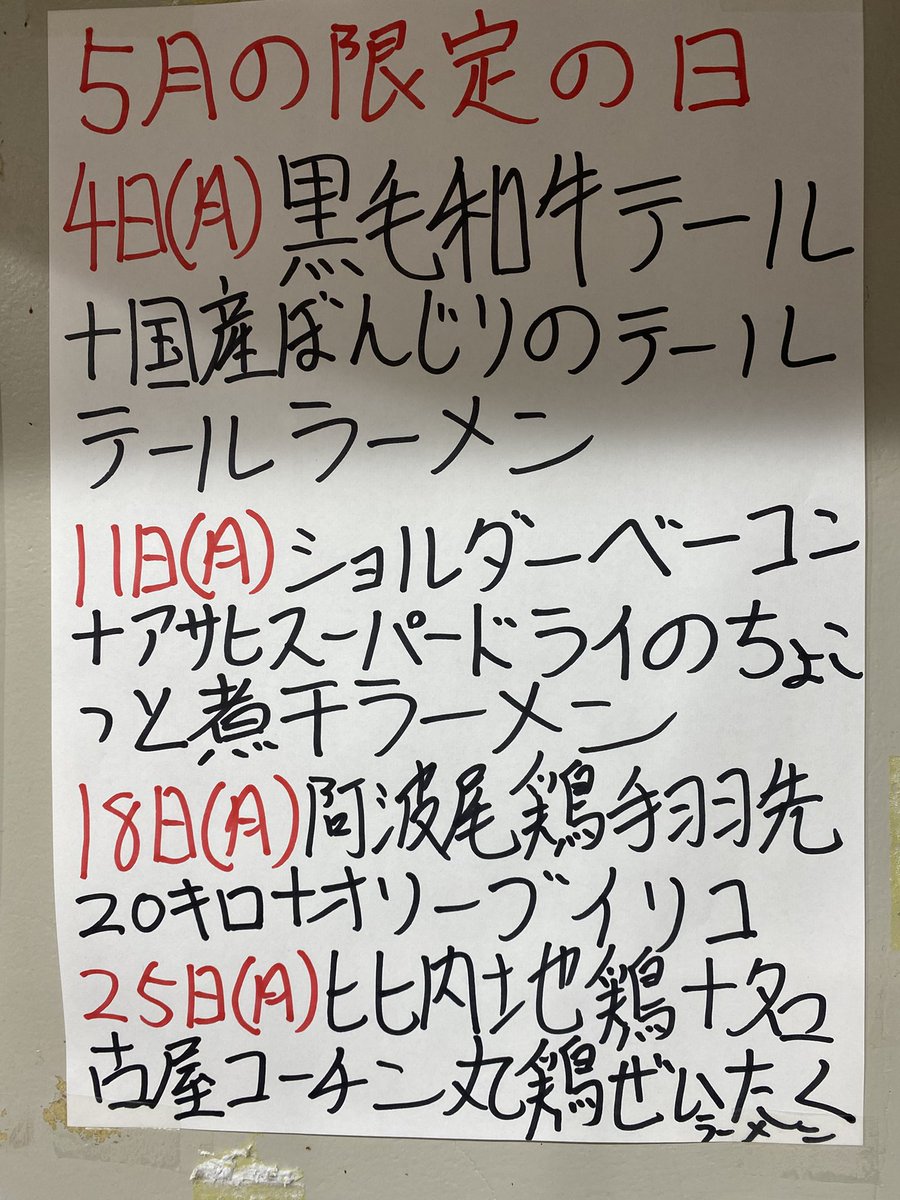 5月の限定の日
4日(月)黒毛和牛テール
+国産ぼんじりのテール
テールラーメン
11日(月)ショルダーベーコン
+アサヒスーパードライのちょこ
っと煮干ラーメン
18日(月)阿波尾鶏手羽先
20キロ+オリーブイリコ
25日(月)比内地鶏+名
古屋コーチン丸鶏ぜいたく
ラーメン